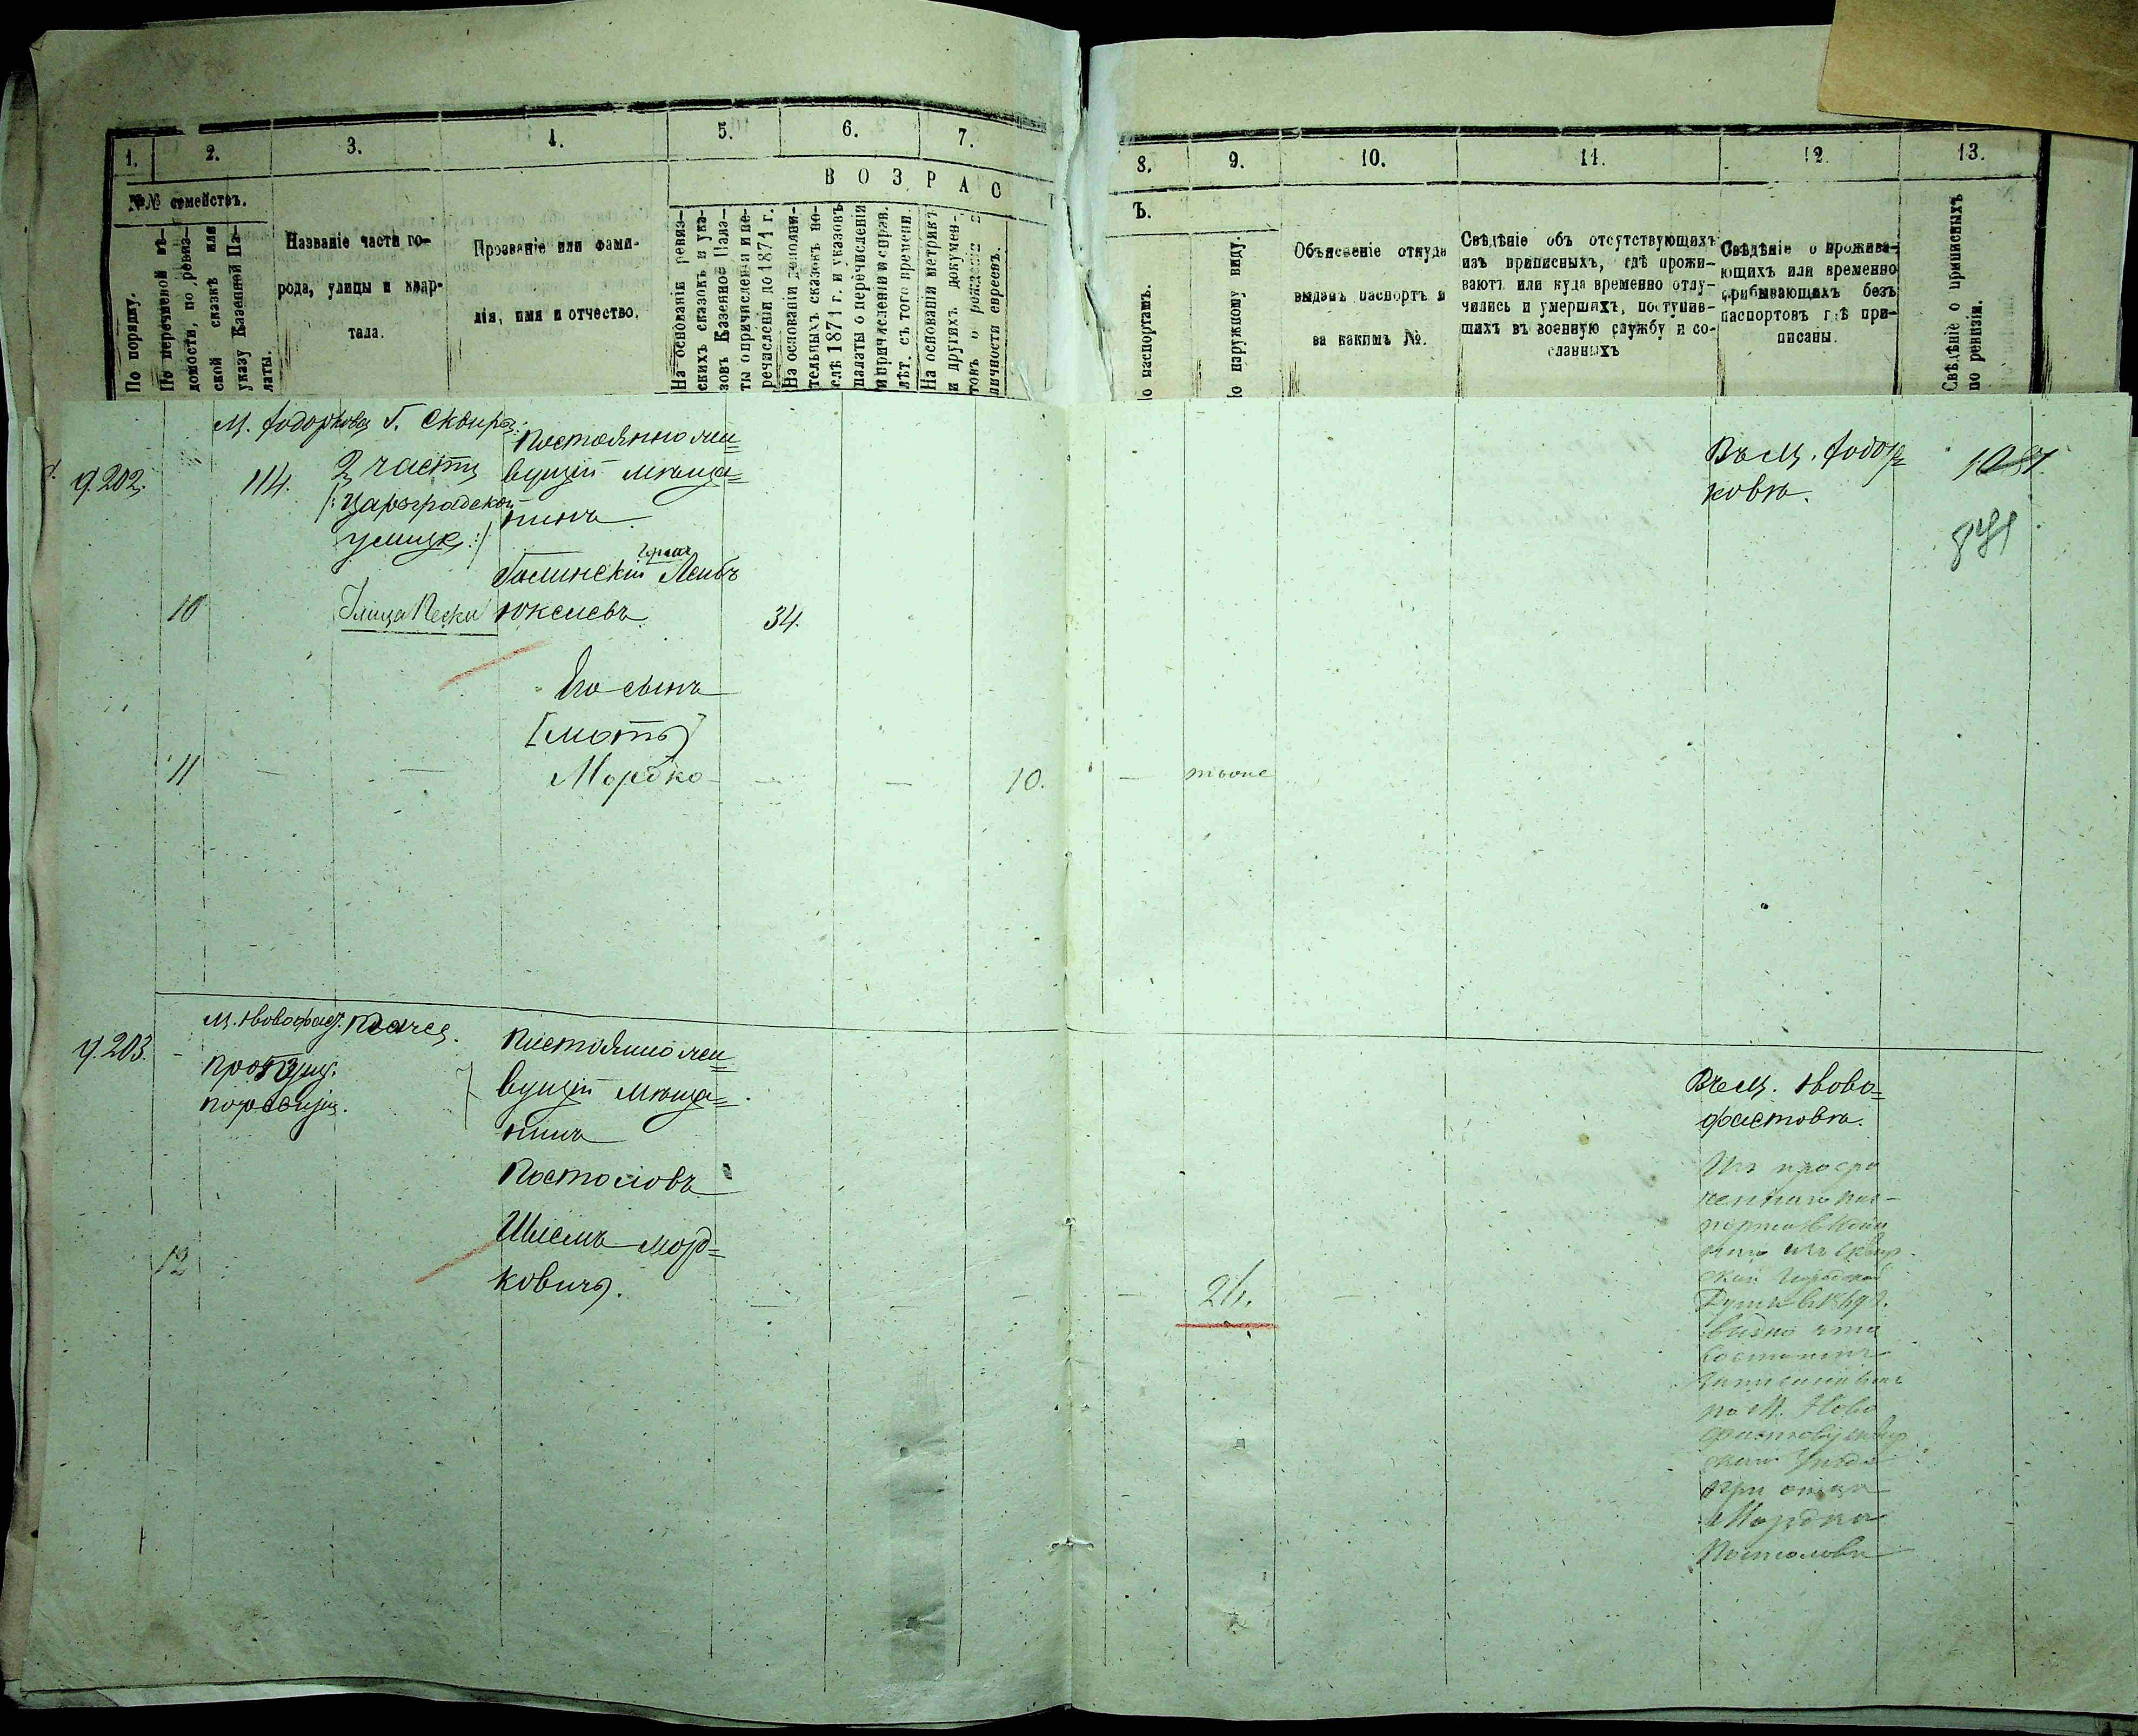 1.
2.
3.
4.
5.
6.
7.
8.
9.
10.
11.
12.
13.
ВОЗРАС
Ъ.
№№ семействъ.
По порядку.
По перечневой вѣ-
домости, по ревиз-
ской сказкѣ или
указу Казенной Па-
латы.
Названіе части го-
рода, улицы и квар-
тала.
Прозваніе или фами-
лія, имя и отчество.
На основаніи ревиз-
скихъ сказокъ и ука-
зовъ Казенной Пала-
ты о причисленіи и пе-
речисленіи до 1871 г.
На основаніи дополни-
тельныхъ сказокъ по-
слѣ 1871 г. и указовъ
палаты о перечисленіи
и причисленіи и справ.
лѣт. съ того времени.
На основаніи метрикъ
и другихъ докумен-
товъ о рожденіи и
личности евреевъ.
о паспортамъ.
о наружному виду.
Объясненіе откуда
выданъ паспортъ и
за какимъ №.
Свѣдѣніе объ отсутствующихъ
изъ приписныхъ, гдѣ прожи-
ваютъ или куда временно отлу-
чились и умершихъ, поступив-
шихъ въ военную службу и со-
сланныхъ
Свѣдѣніе о прожива-
ющихъ или временно
прибывающихъ безъ
паспортовъ гдѣ при-
писаны.
Свѣдѣніе о приписныхъ
по ревизіи.
М. Ходорковъ Г. Сквира:
Ч. 202.
114.
2 части
/: Цареградской
улицѣ :/
Постоянно жи=
вущій мѣща=
нинъ
Галинскій Лейбъ
10
Улица Пески
Юкелевъ
34.
Его сынъ
[мать]
11
Мордко
10.
тоже
Въ М. Ходор=
ковѣ.
1081
М. Новофаст.
Ч. 203.
Постоянно жи=
вущій мѣща=
нинъ
Постоловъ
Шлемъ Морд=
ковичъ.
12
24.
Въ М. Ново=
фастовѣ.
видно что
по М. Ново
при отцѣ
Мордка
Постолова